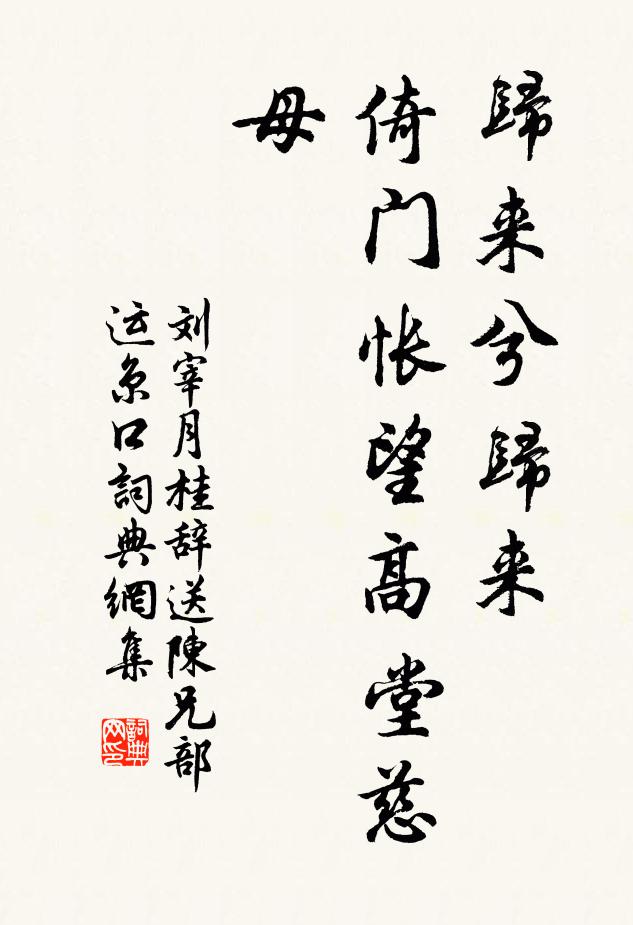 歸来兮歸来
倚门悵望高堂慈
母
刘宰月桂辞送陳兄部
运京口詞典網集
詞典
网印